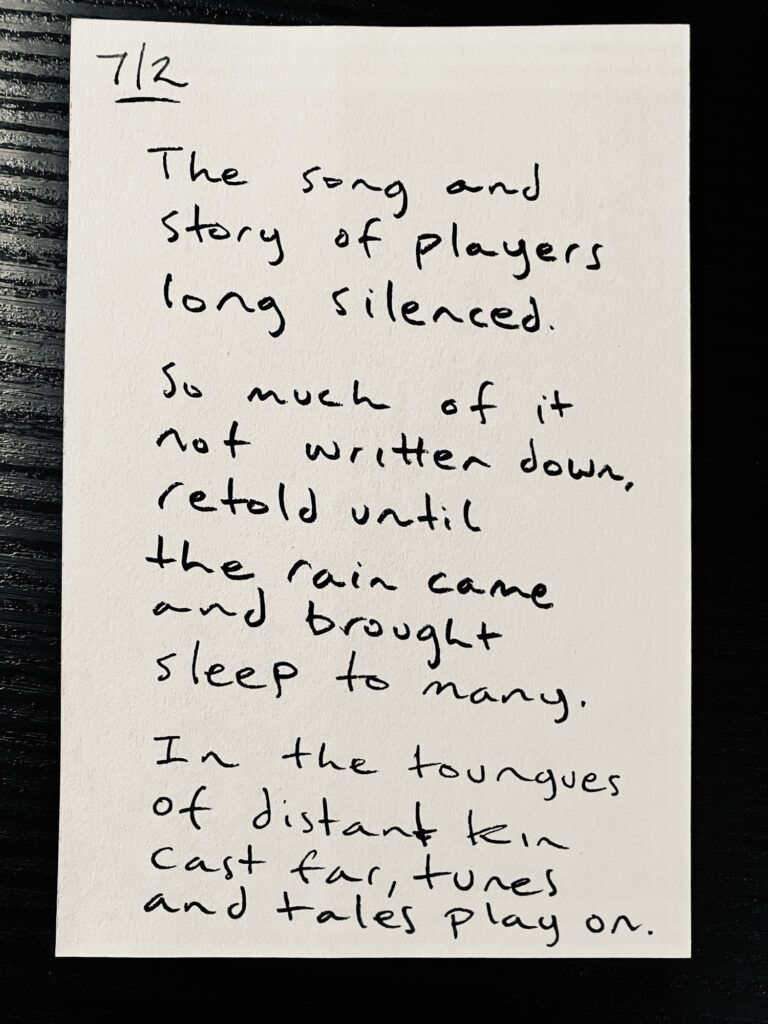 7/2
The song and
story of players
long silenced.
So much of it
not written down,
retold until
the rain came
and brought
sleep to many.
In the toungues
of distant kin
cast far, tunes
and tales play on.